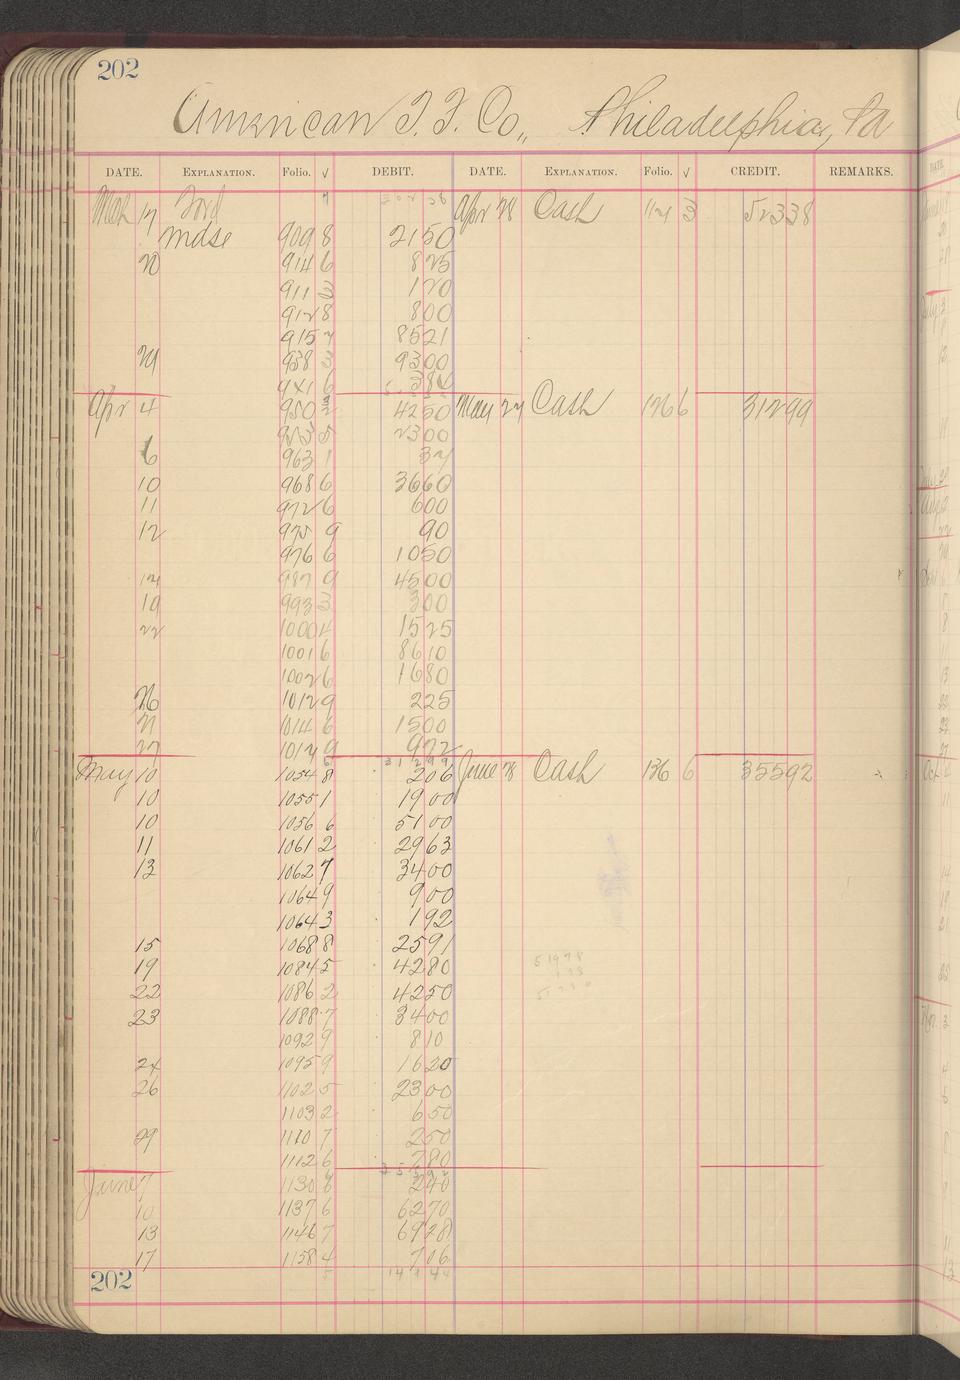 202
American T. F. Co., Philadelphia, Pa
DATE. EXPLANATION. Folio. √ DEBIT. DATE. EXPLANATION. Folio. √ CREDIT. REMARKS.
Mch 17 Ford Apr 28 Cash 1121 3 52338
Mdse 909 8 2150
20 914 6 825
911 3 120
912 8 800
915 7 8521
29 938 3 9300
941 6
Apr 4 950 4250 May 27 Cash 126 6 31299
953 5 2300
6 963 1 37
10 968 6 3660
11 972 6 600
12 975 9 90
976 6 1050
987 9 4500
19 993 3 300
22 1000 4 1525
1001 6 8610
1002 6 1680
26 1012 9 225
1014 6 1500
27 1017 9 972
31299
May 10 1054 8 206 June 28 Cash 136 6 35592
10 1055 1 1900
10 1056 6 5100
11 1061 2 2963
13 1062 7 3400
1064 9 900
1064 3 192
15 1068 8 2591
19 1084 5 4280
22 1086 2 4250
23 1088 7 3400
1092 9 810
24 1095 9 1620
26 1102 5 2300
1103 2 650
29 1110 7 250
1112 6 780
35592
June 7 1130 6 240
10 1137 6 6270
13 1146 7 6928
17 1158 4 706
202